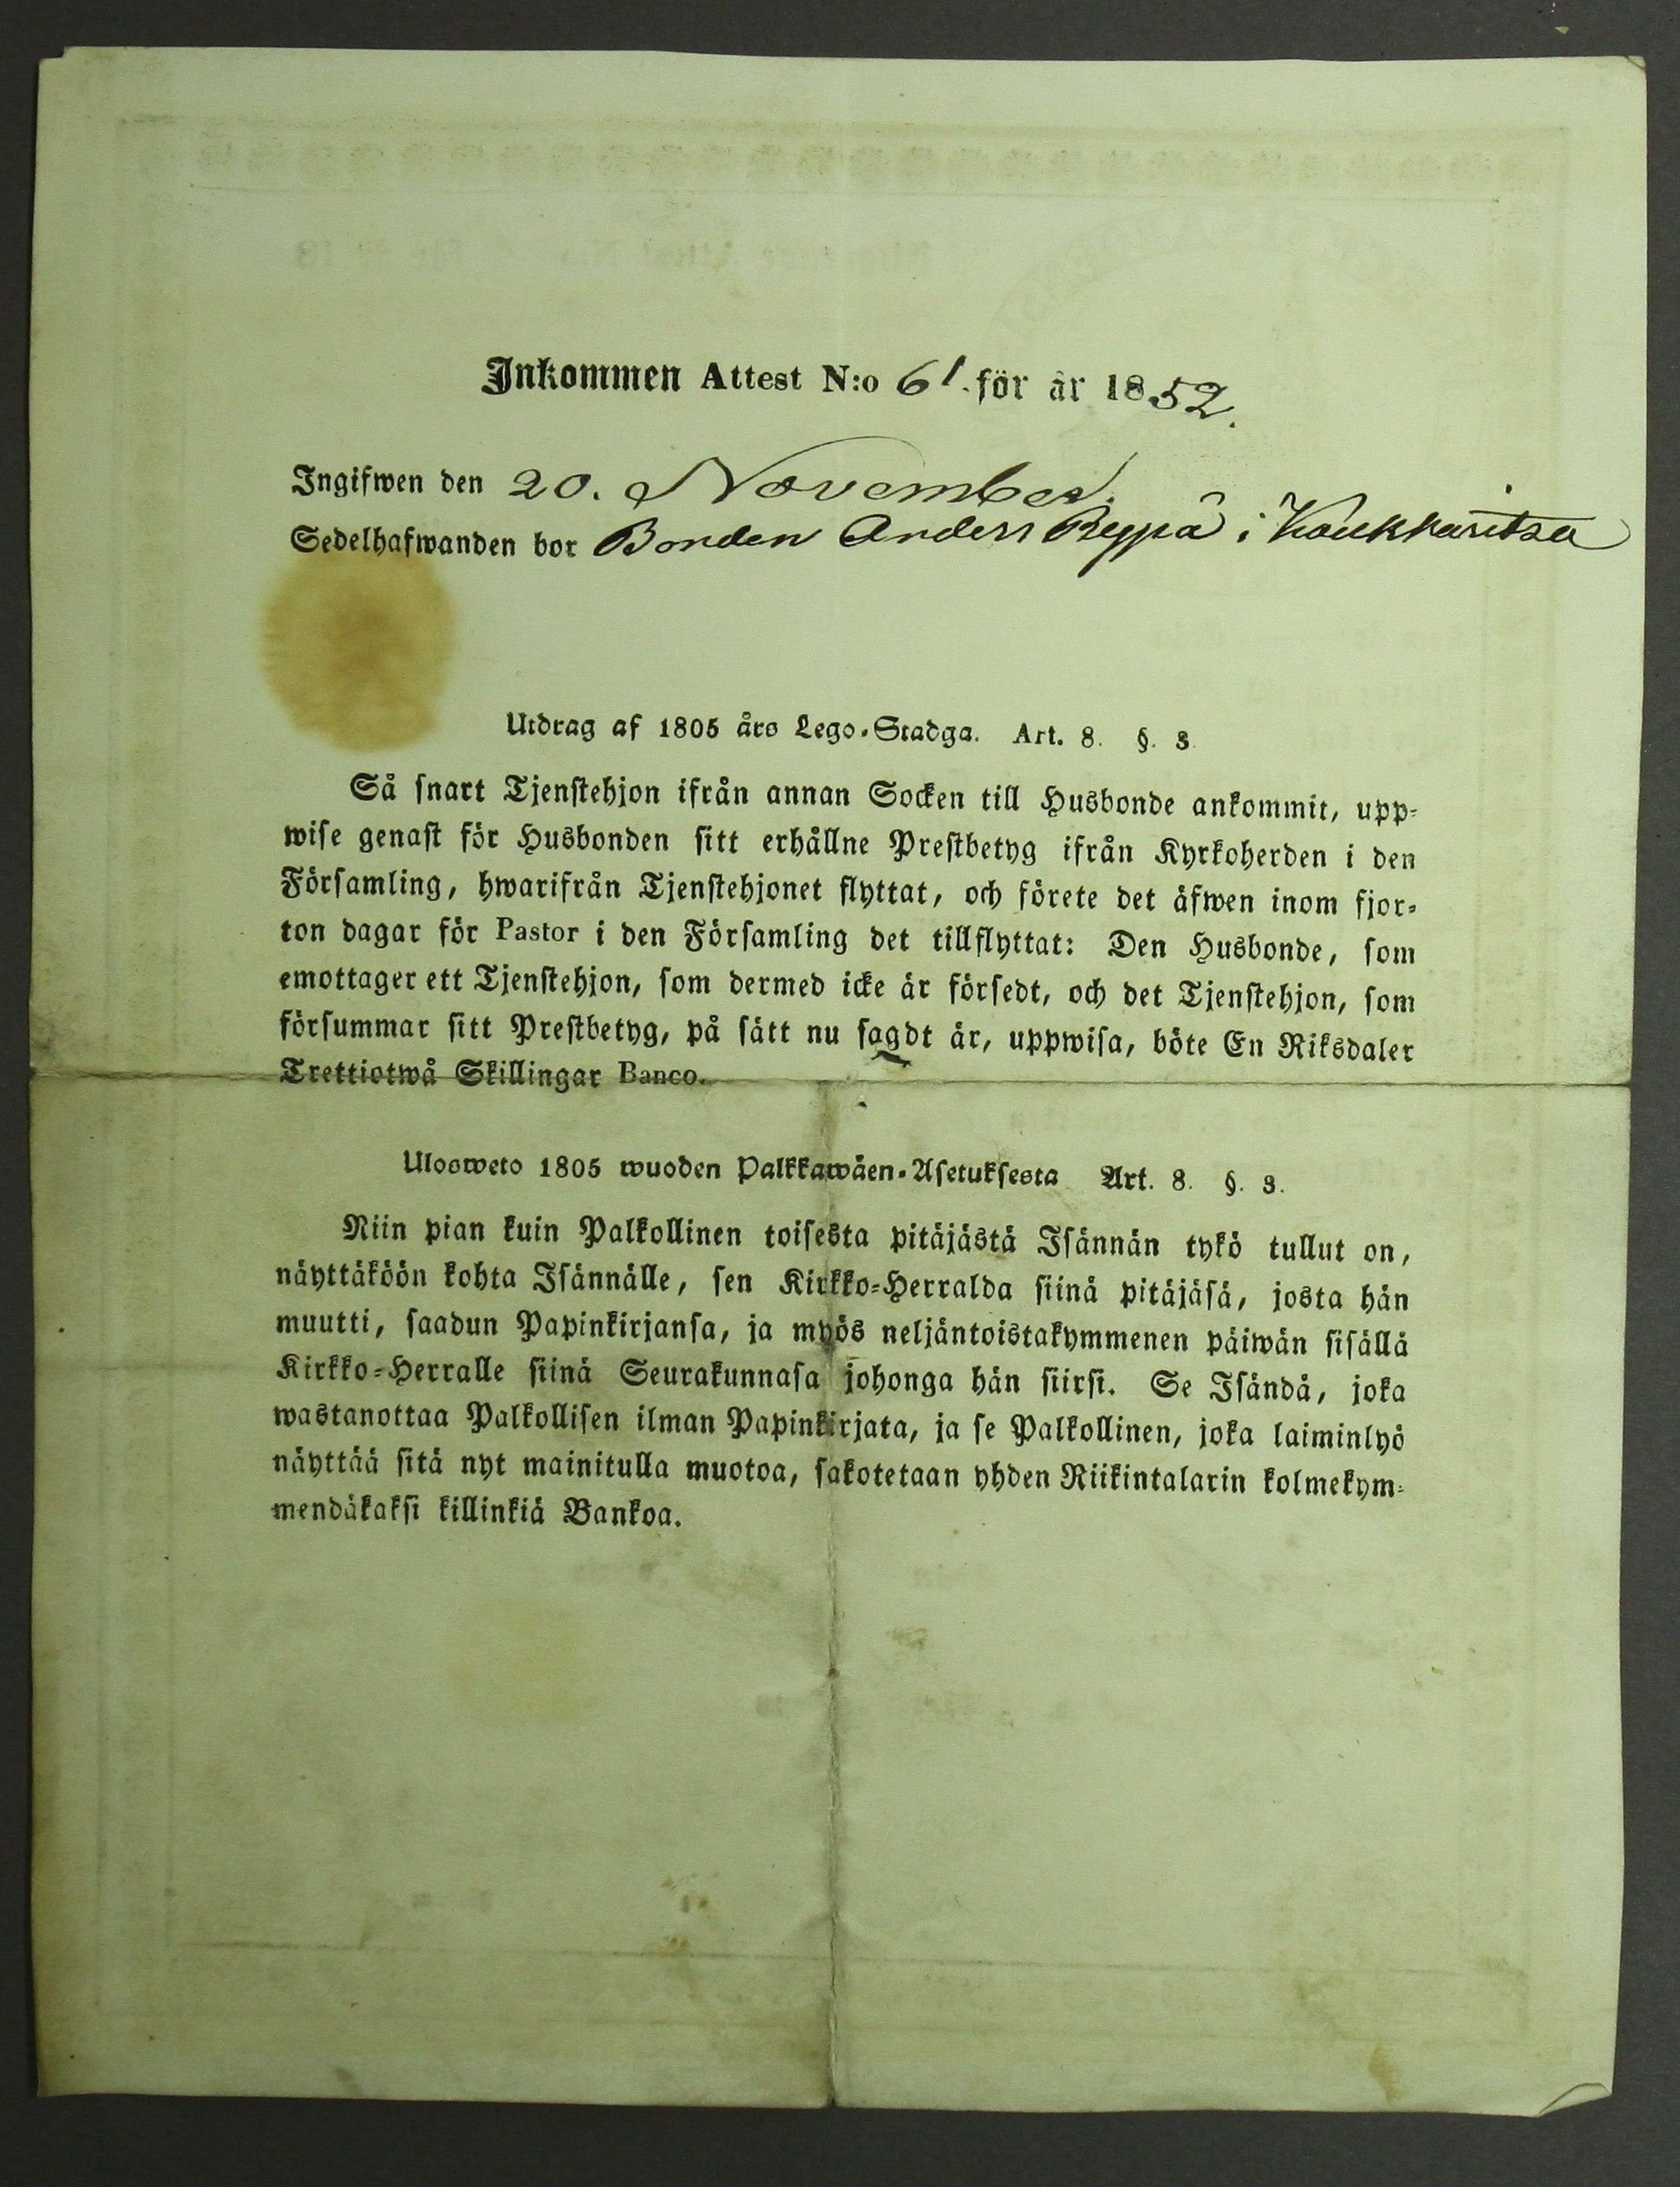 Inkommen Attest N:o 61. för år 1852.
Ingifwen den 20. November.
Sedelhafwanden bor Bonden Anders Reppä i Koukkaritsa
Utdrag af 1805 års Lego-Stadga. Art. 8. §. 3.
Så snart Tjenstehjon ifrån annan Socken till Husbonde ankommit, upp-
wise genast för Husbonden sitt erhållne Prestbetyg ifrån Kyrkoherden i den
Församling, hwarifrån Tjenstehjonet flyttat, och förete det äfwen inom fjor-
ton dagar för Pastor i den Församling det tillflyttat: Den Husbonde, som
emottager ett Tjenstehjon, som dermed icke är försedt, och det Tjenstehjon, som
försummar sitt Prestbetyg, på sätt nu sagdt är, uppwisa, böte En Riksdaler
Trettiotwå Skillingar Banco.
Ulosweto 1805 wuoden Palkkawäen-Asetuksesta Art. 8. §. 3.
Niin pian kuin Palkollinen toisesta pitäjästä Isännän tykö tullut on,
näyttäköön kohta Isännälle, sen Kirkko-Herralda siinä pitäjäsä, josta hän
muutti, saadun Papinkirjansa, ja myös neljäntoistakymmenen päiwän sisällä
Kirkko-Herralle siinä Seurakunnasa johonga hän siirsi. Se Isändä, joka
wastanottaa Palkollisen ilman Papinkirjata, ja se Palkollinen, joka laiminlyö
näyttää sitä nyt mainitulla muotoa, sakotetaan yhden Riikintalarin kolmekym-
mendäkaksi killinkiä Bankoa.